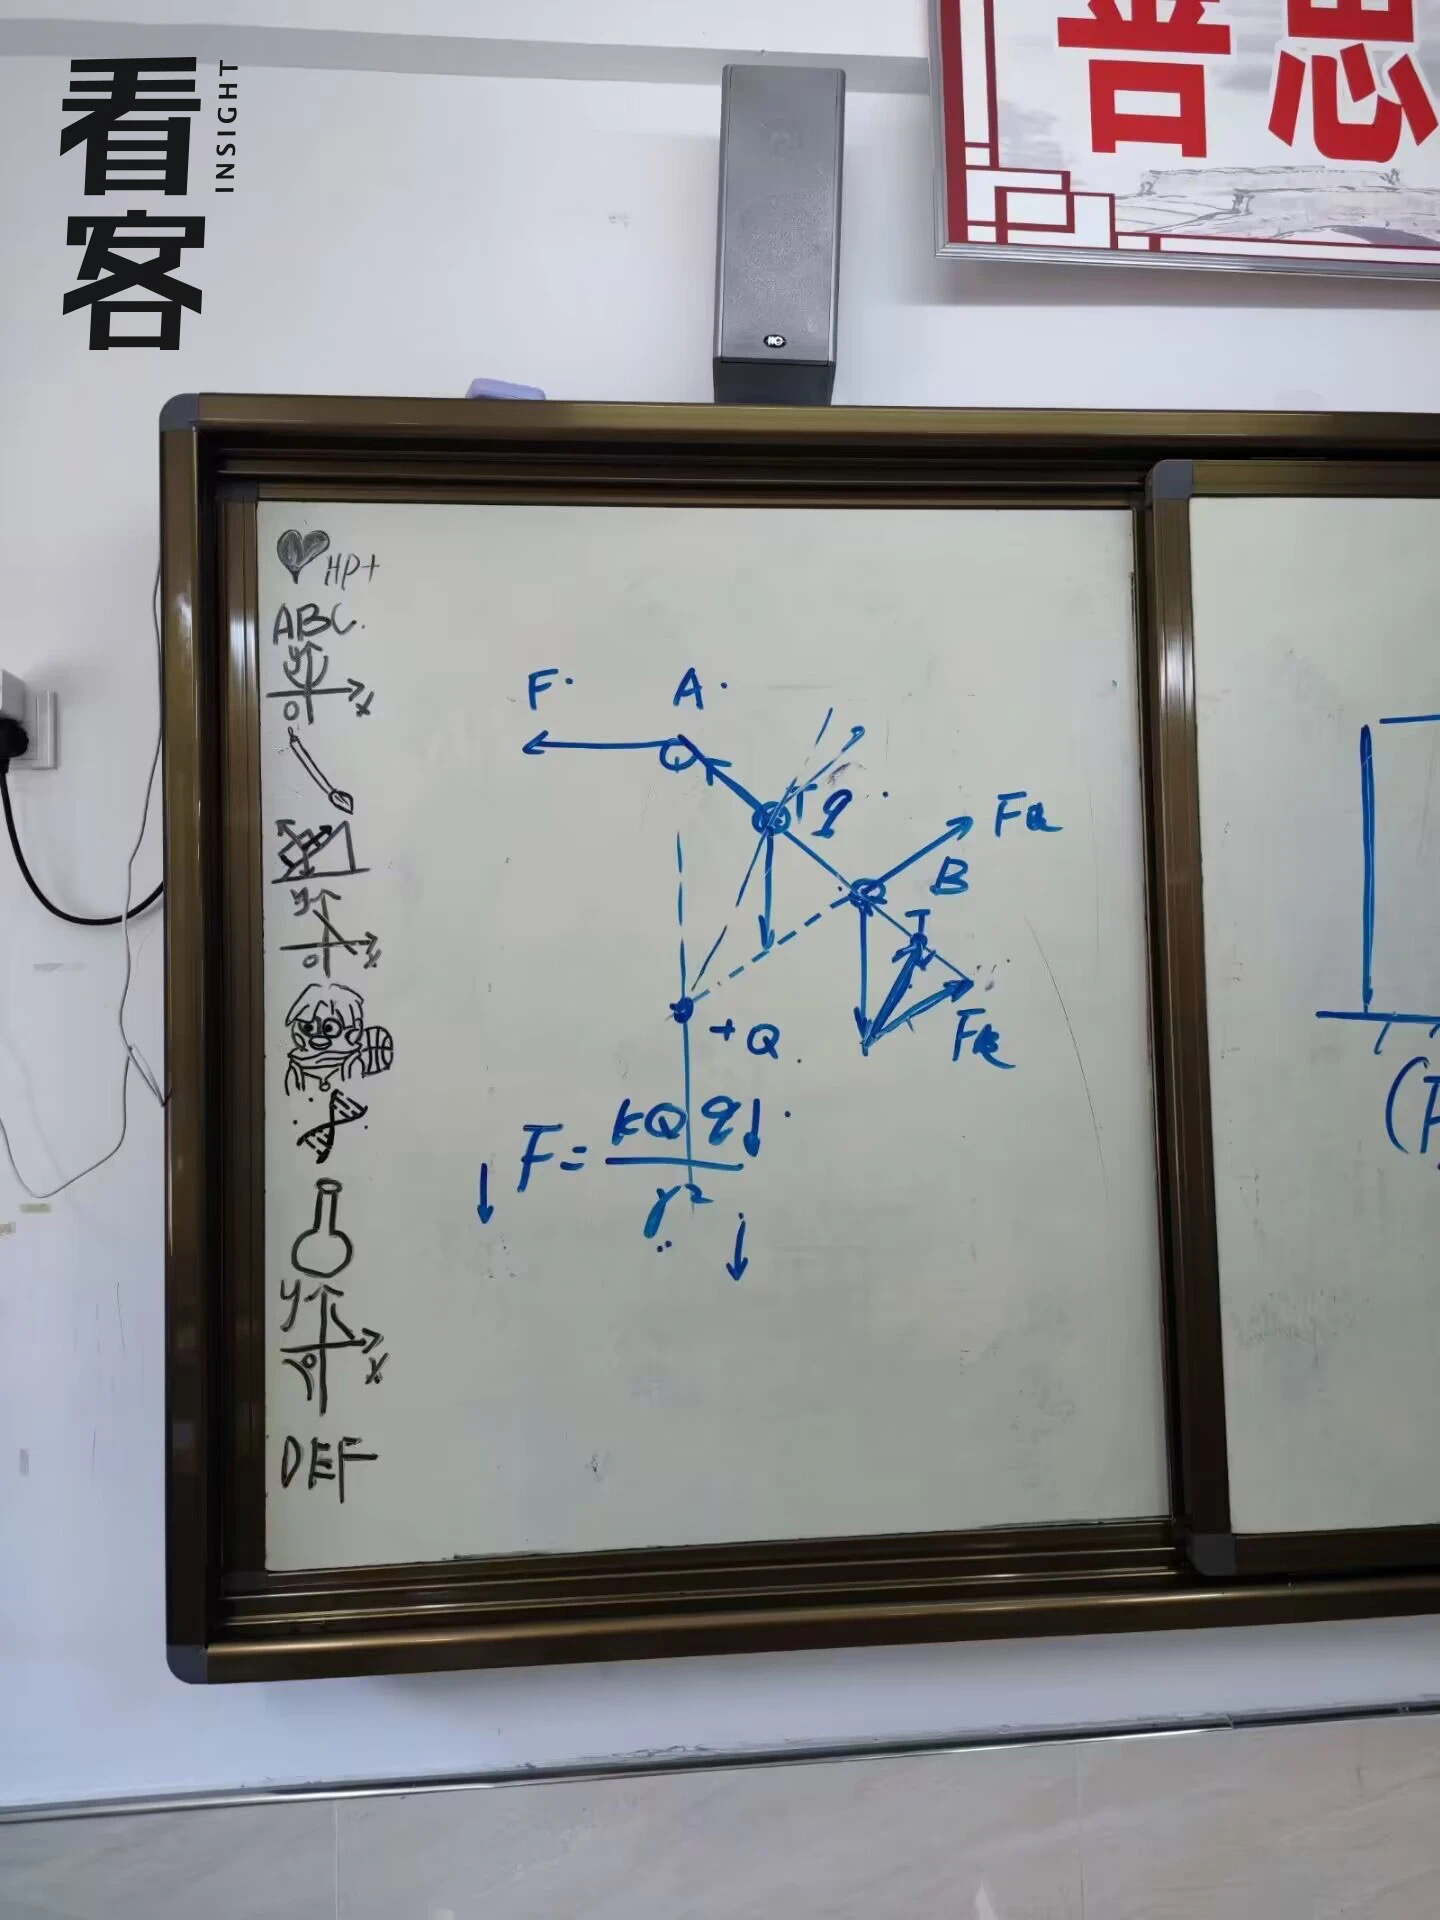 看客
INSIGHT
善思
HP+
ABC.
y
O x
y
O x
y
O x
DEF
F A
q
FQ
B
T
+Q
FQ
F= kQq
r²